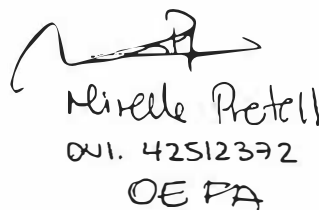 Mirelle Pretell
DNI. 42512372
OEFA